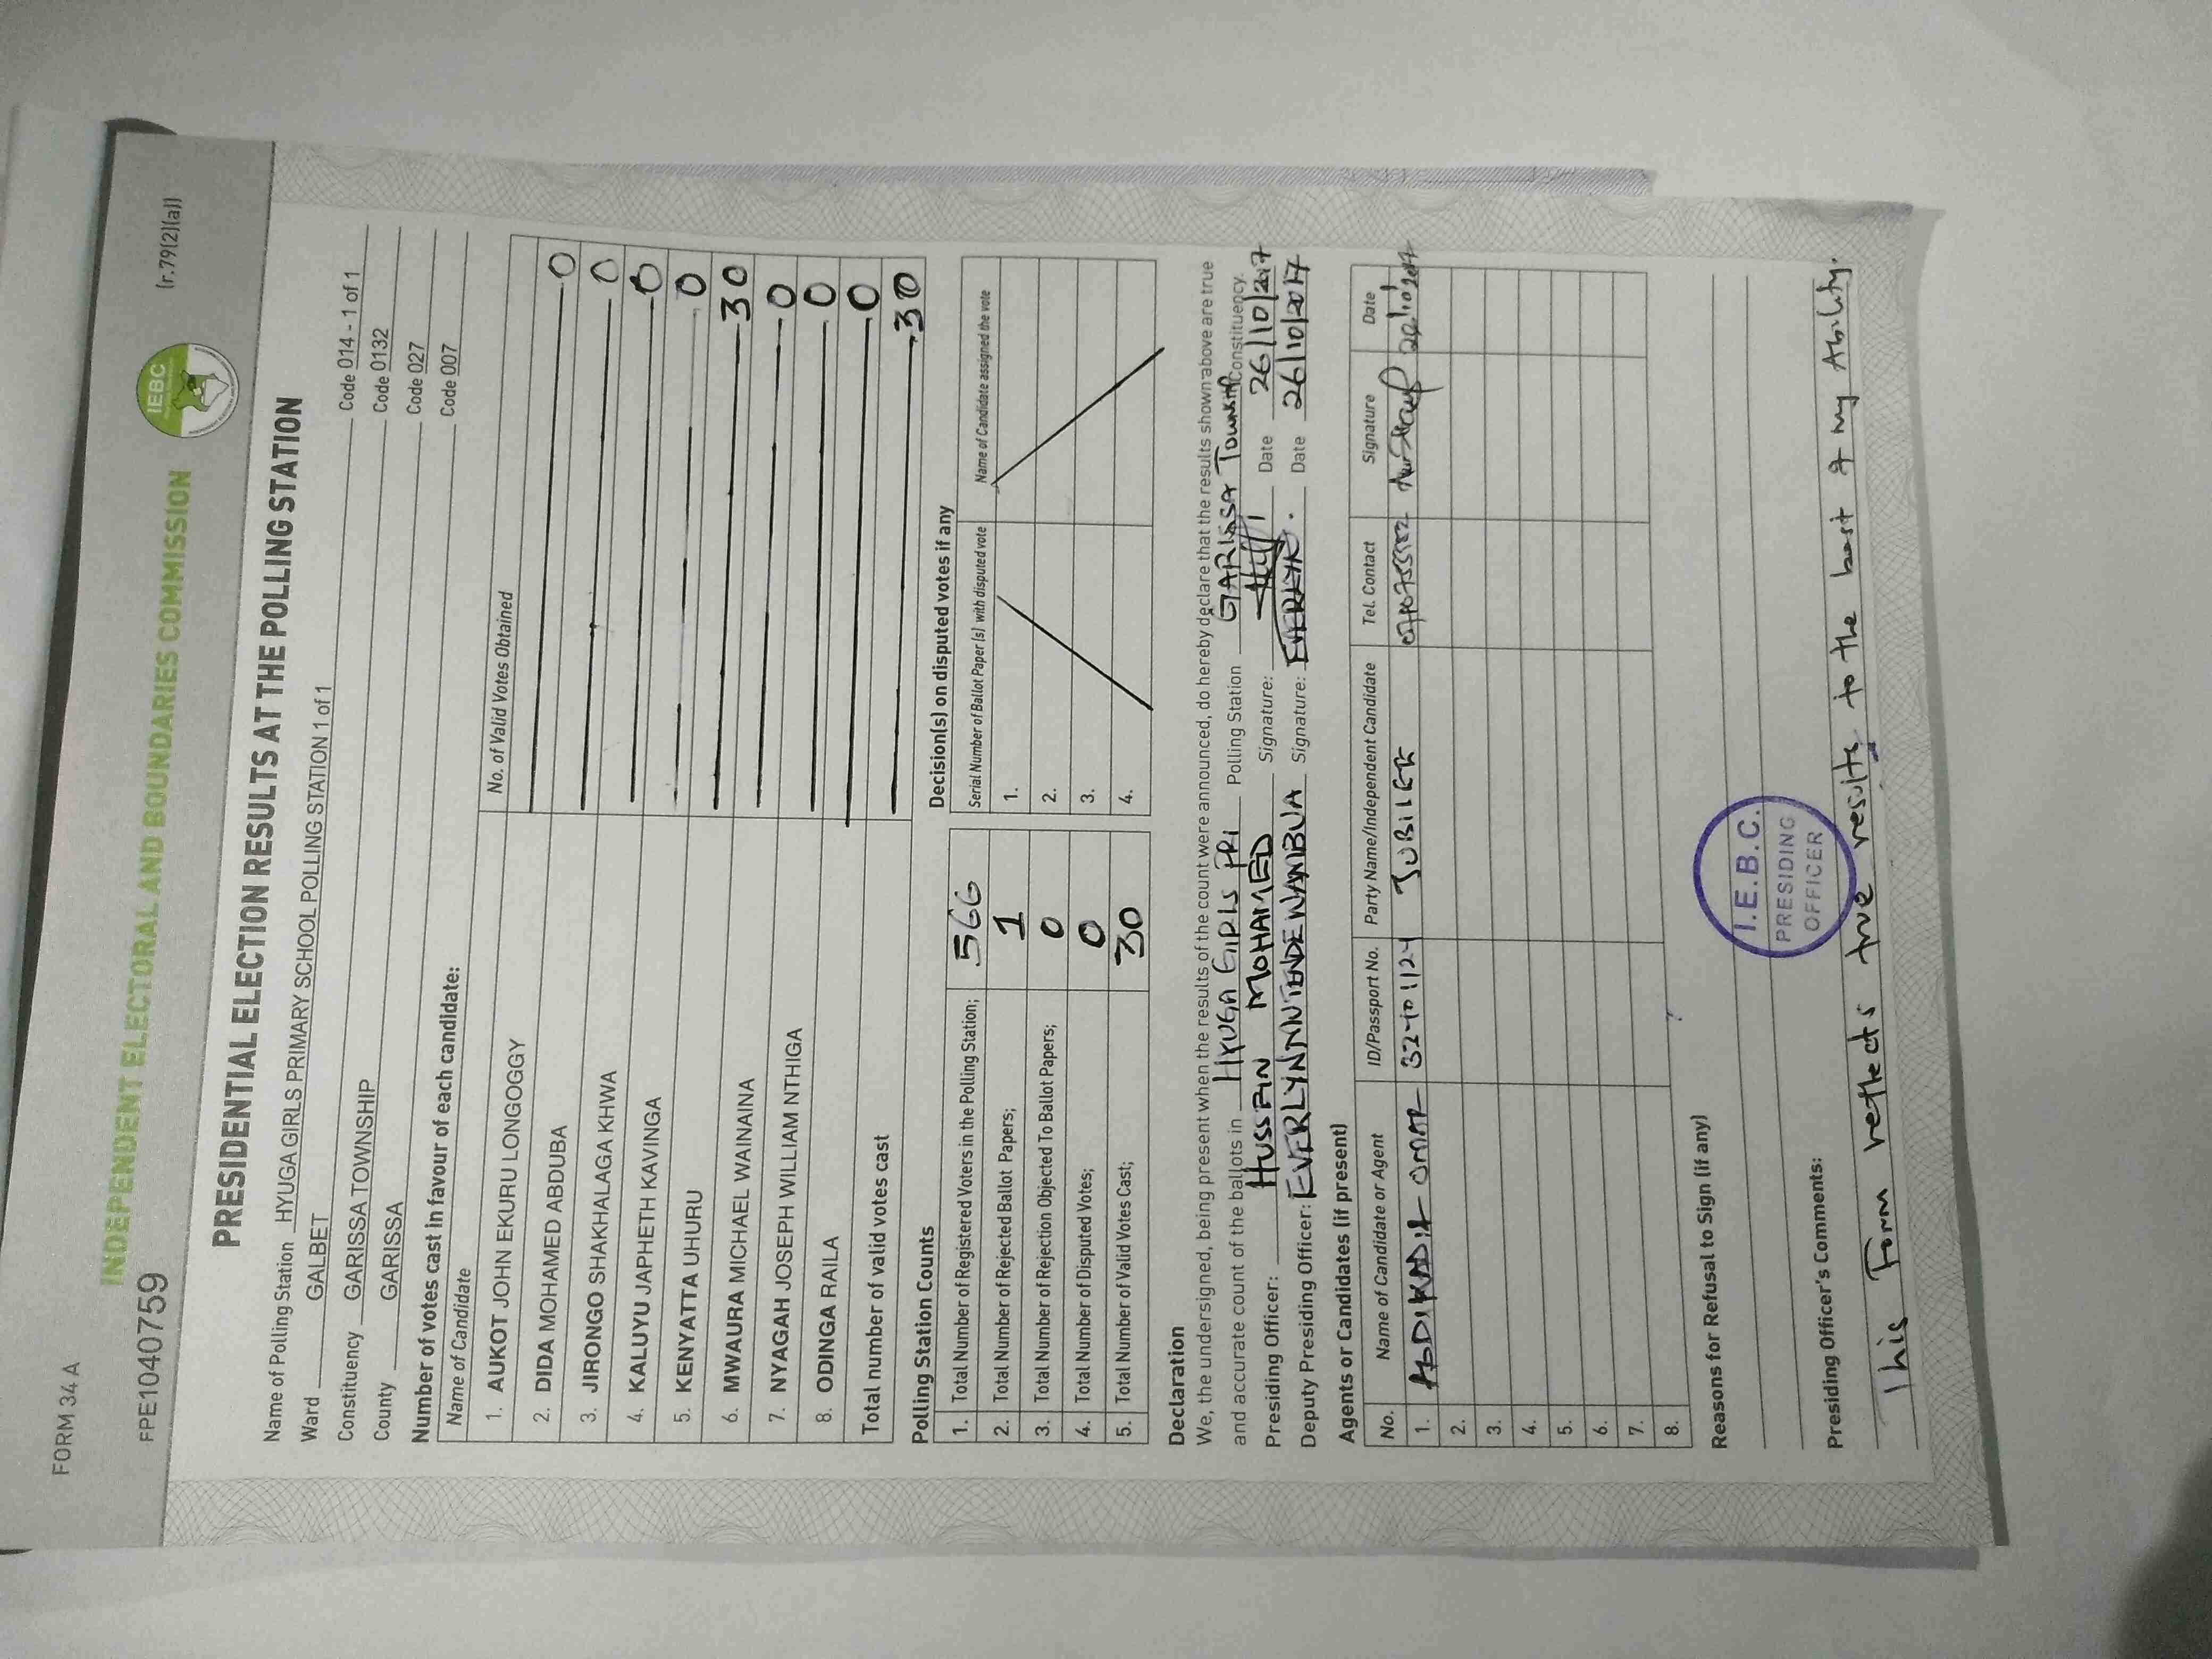 FORM 34 A
INDEPENDENT ELECTORAL AND BOUNDARIES COMMISSION
IEBC
(r.79(2)(a))
FPE1040759
PRESIDENTIAL ELECTION RESULTS AT THE POLLING STATION
Name of Polling Station HYUGA GIRLS PRIMARY SCHOOL POLLING STATION 1 of 1 Code 014 - 1 of 1
Ward GALBET Code 0132
Constituency GARISSA TOWNSHIP Code 027
County GARISSA Code 007
Number of votes cast in favour of each candidate:
Name of Candidate No. of Valid Votes Obtained
1. AUKOT JOHN EKURU LONGOGGY 0
2. DIDA MOHAMED ABDUBA 0
3. JIRONGO SHAKHALAGA KHWA 0
4. KALUYU JAPHETH KAVINGA 0
5. KENYATTA UHURU 30
6. MWAURA MICHAEL WAINAINA 0
7. NYAGAH JOSEPH WILLIAM NTHIGA 0
8. ODINGA RAILA 0
Total number of valid votes cast 30
Polling Station Counts
1. Total Number of Registered Voters in the Polling Station; 566
2. Total Number of Rejected Ballot Papers; 1
3. Total Number of Rejection Objected To Ballot Papers; 0
4. Total Number of Disputed Votes; 0
5. Total Number of Valid Votes Cast; 30
Decision(s) on disputed votes if any
Serial Number of Ballot Paper (s) with disputed vote Name of Candidate assigned the vote
1.
2.
3.
4.
Declaration
We, the undersigned, being present when the results of the count were announced, do hereby declare that the results shown above are true
and accurate count of the ballots in HYUGA GIRLS PRI Polling Station GARISSA TOWNSHIP Constituency.
Presiding Officer: HUSSEIN MOHAMED Signature: Date 26/10/2017
Deputy Presiding Officer: EVERLYNN NTENDE WAMBUA Signature: EVERLYN. Date 26/10/2017
Agents or Candidates (if present)
No. Name of Candidate or Agent ID/Passport No. Party Name/Independent Candidate Tel. Contact Signature Date
1. ABDIKADIR OMAR JUBILEE
2.
3.
4.
5.
6.
7.
8.
Reasons for Refusal to Sign (if any)
I.E.B.C.
PRESIDING
OFFICER
Presiding Officer's Comments:
This Form reflects true results to the best of my Ability.